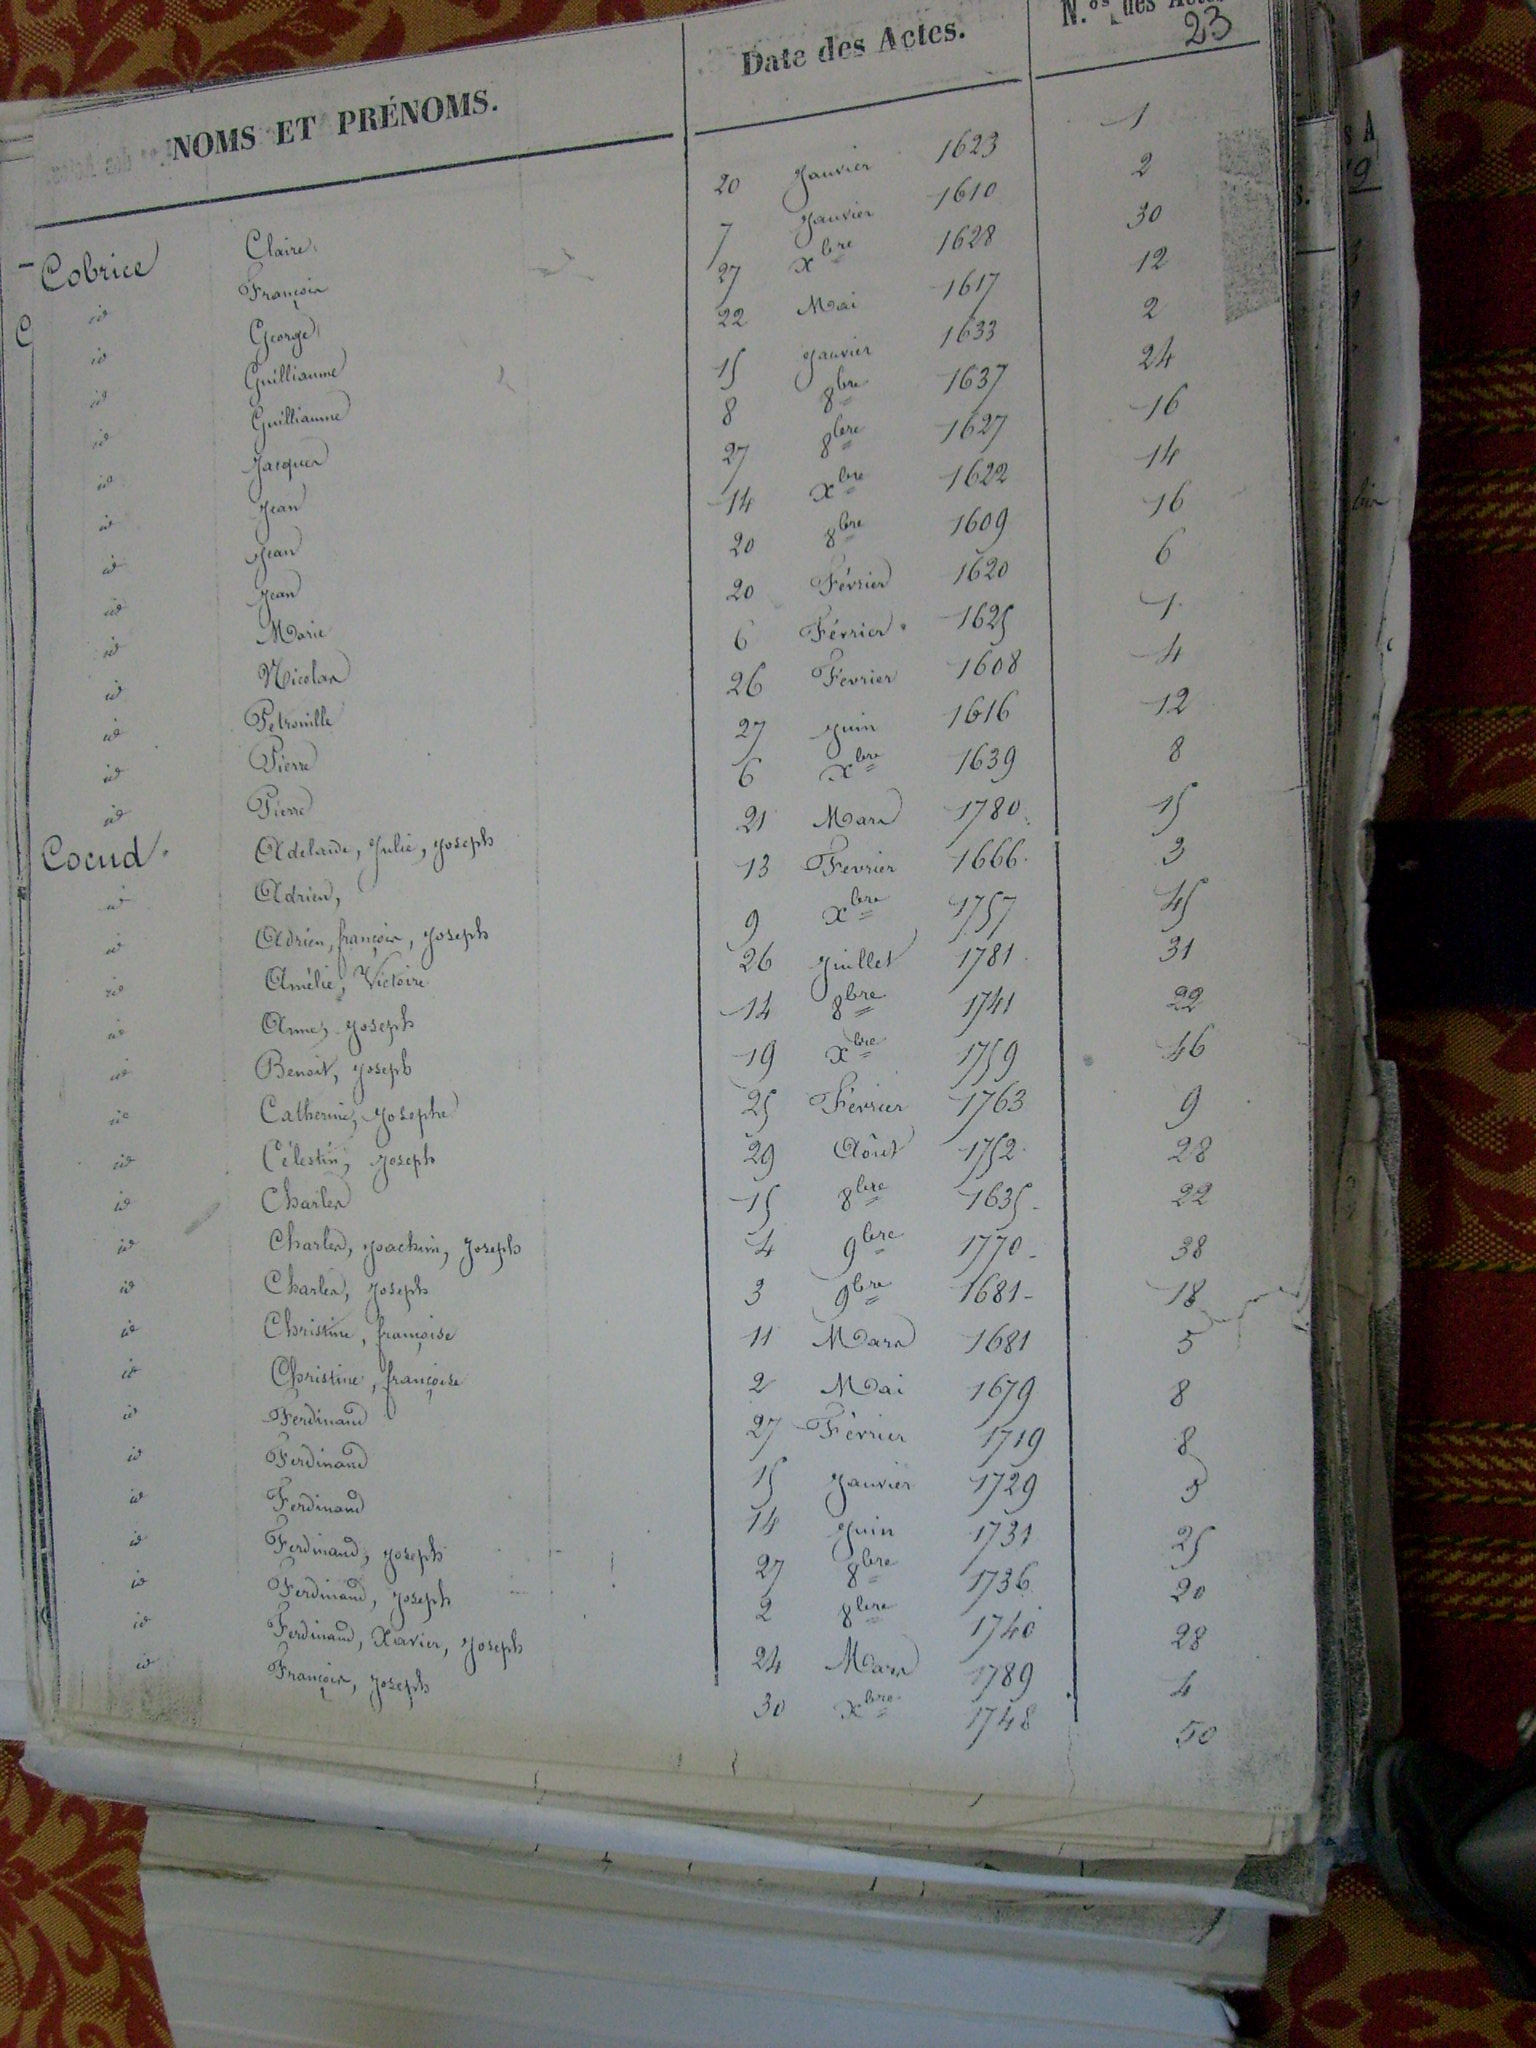 NOMS ET PRÉNOMS. Date des Actes. N.os des Actes
23
Cobrice Claire. 20 Janvier 1623 1
id François 7 Janvier 1610 2
id George 27 xbre 1628 30
id Guilliaume 22 Mai 1617 12
id Guilliaume 15 Janvier 1633 2
id Jacques 8 8bre 1637 24
id Jean 27 8bre 1627 16
id Jean 14 xbre 1622 14
id Jean 20 8bre 1609 16
id Marie 20 Février 1620 6
id Nicolas 6 Février 1625 1
id Petronille 26 Fevrier 1608 4
id Pierre 27 Juin 1616 12
id Pierre 6 xbre 1639 8
Coeud. Adelaide, Julie, Joseph 21 Mars 1780. 15
id Adrien, 13 Fevrier 1666. 3
id Adrien, françois, Joseph 9 xbre 1757 45
id Amélie, Victoire 26 Juillet 1781 31
id Anne, Joseph 14 8bre 1741 22
id Benoit, Joseph 19 xbre 1759 46
id Catherine, Josephe 25 Février 1763 9
id Célestin, Joseph 29 Août 1752 28
id Charles 15 8bre 1635 22
id Charles, Joachim, Joseph 4 9bre 1770 38
id Charles, Joseph 3 9bre 1681 18
id Christine, françoise 11 Mars 1681 5
id Christine, françoise 2 Mai 1679 8
id Ferdinand 27 Février 1719 8
id Ferdinand 15 Janvier 1729 3
id Ferdinand 14 Juin 1731 25
id Ferdinand, Joseph 27 8bre 1736 20
id Ferdinand, Joseph 2 8bre 1740 28
id Ferdinand, Xavier, Joseph 24 Mars 1789 4
id François, Joseph 30 xbre 1748 50